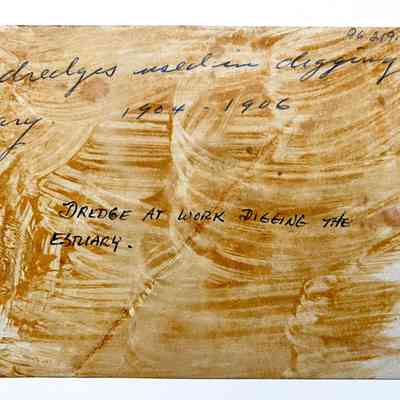 dredges used in digging
ary. 1904 - 1906
DREDGE AT WORK DIGGING THE
ESTUARY.